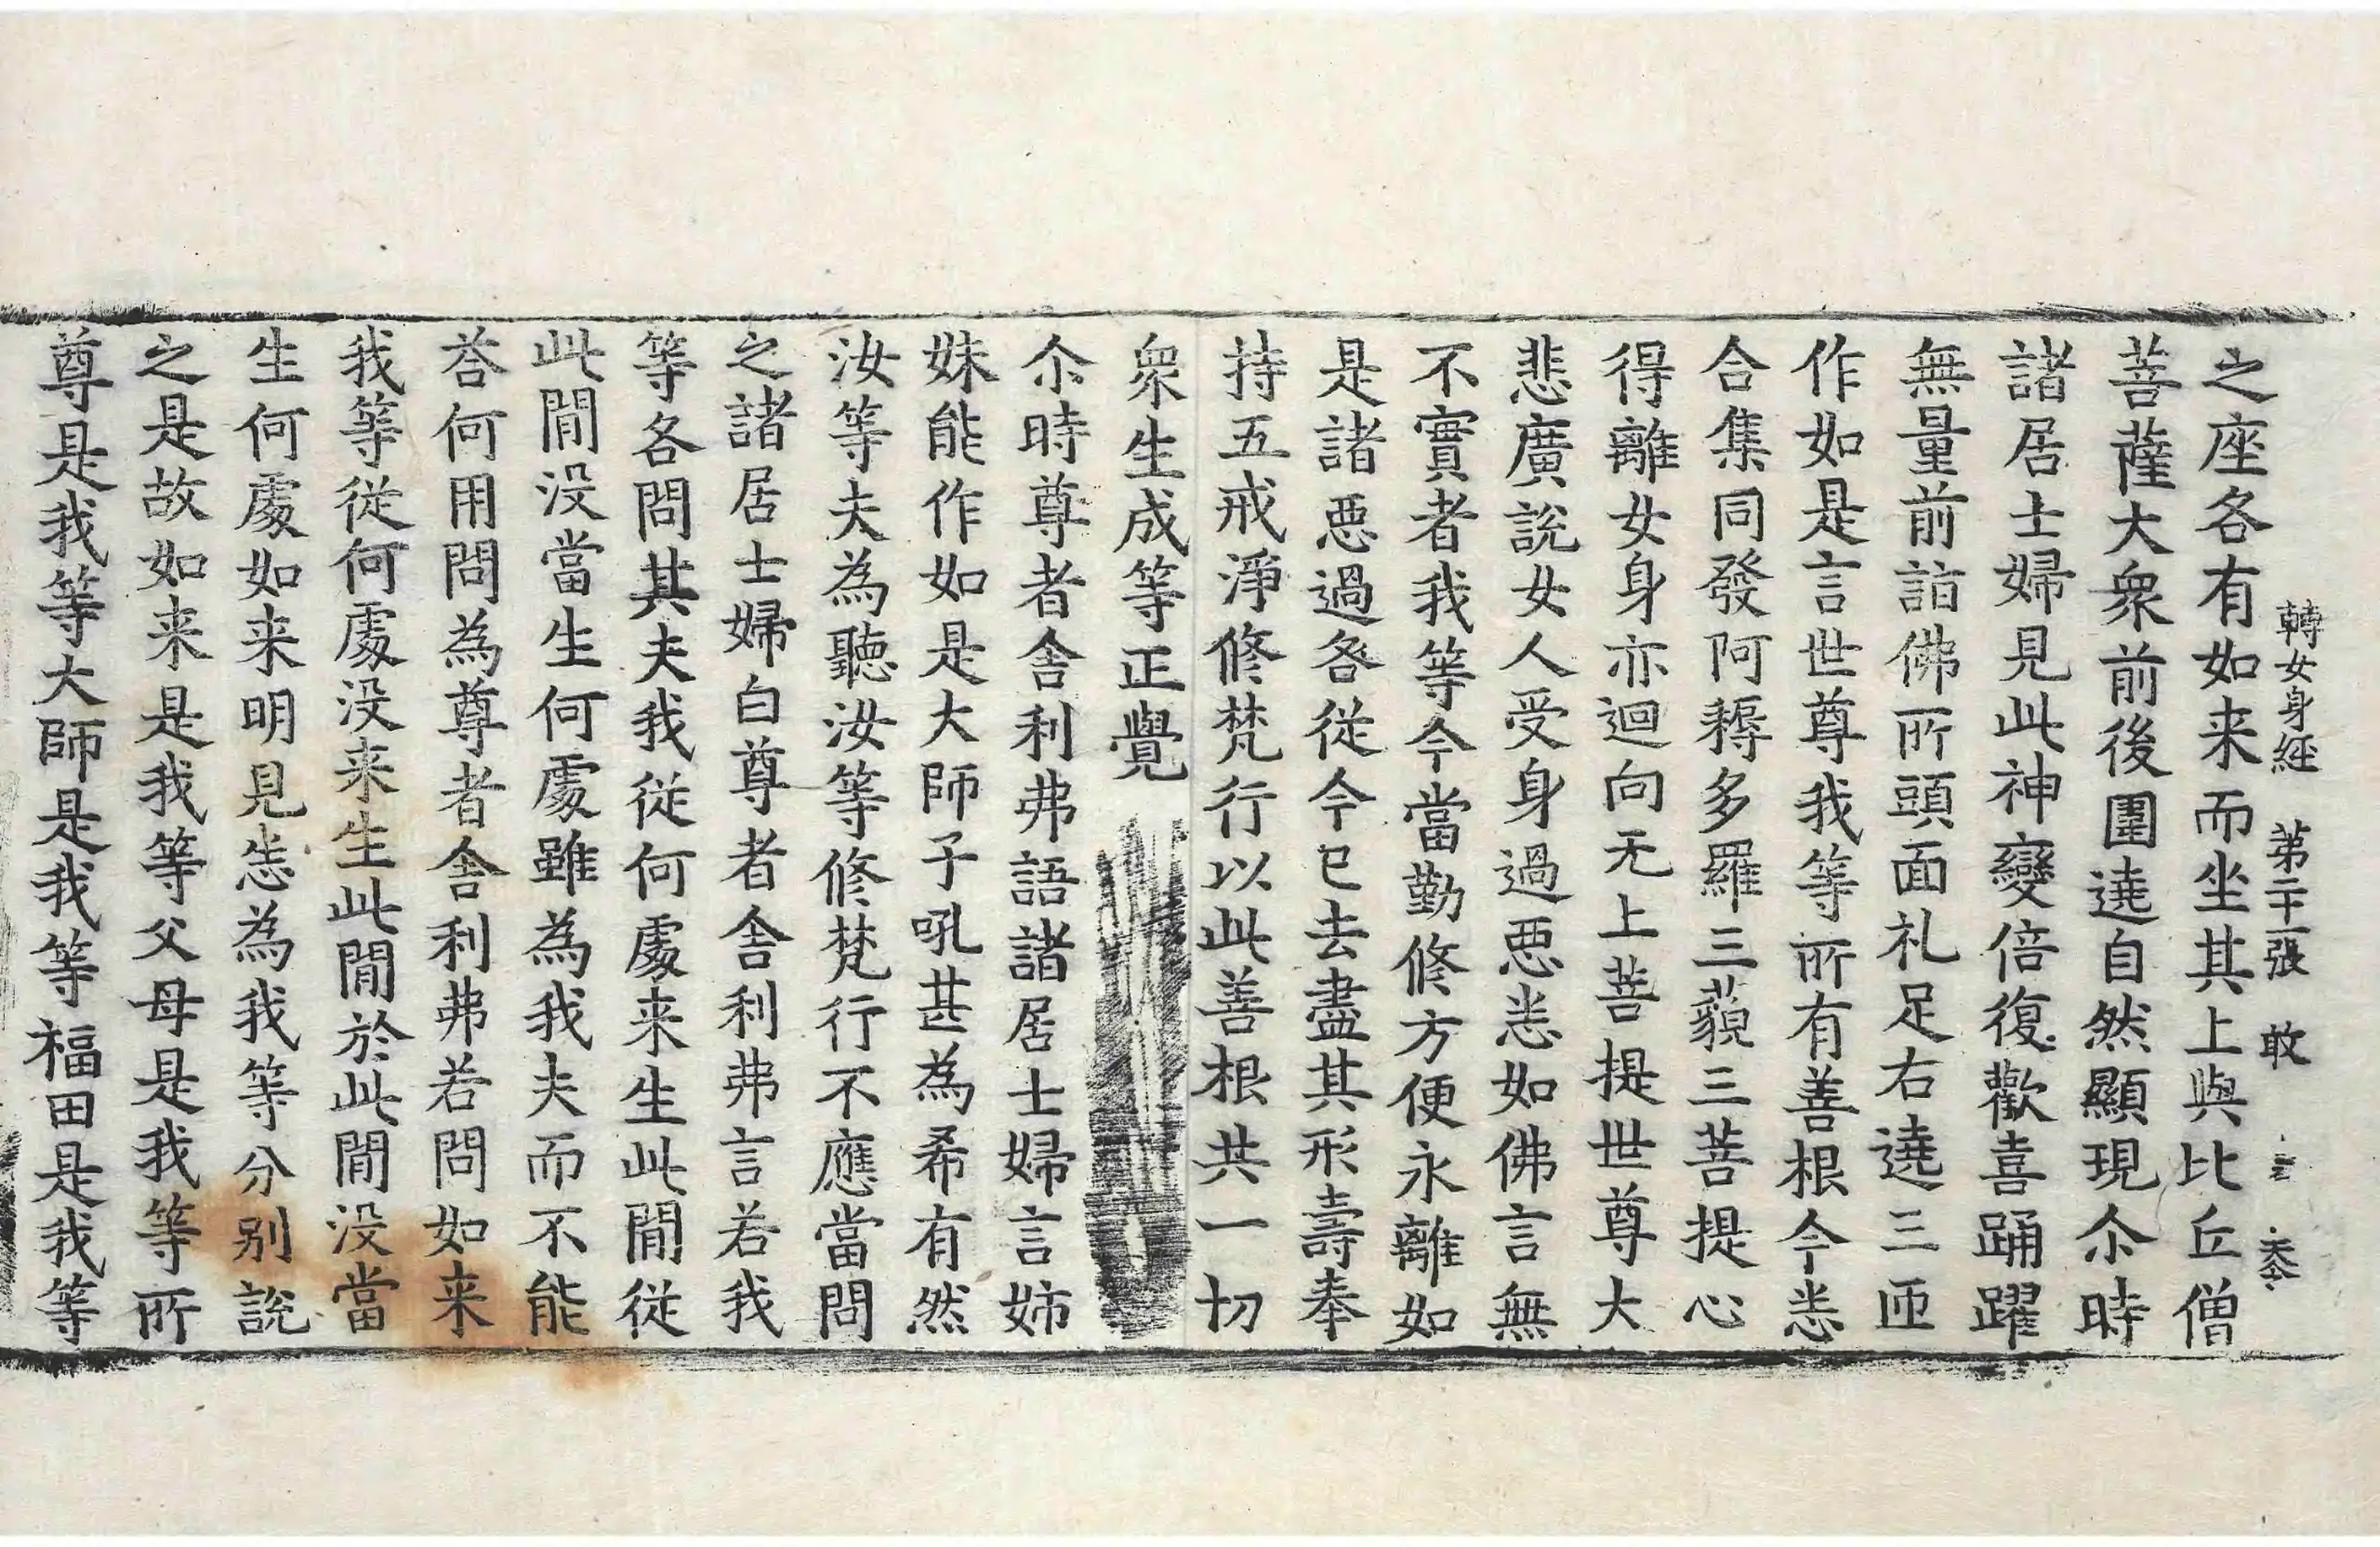 轉女身經 第二十張 敢
之座各有如来而坐其上與比丘僧
菩薩大衆前後圍遶自然顯現尒時
諸居士婦見此神變倍復歡喜踊躍
無量前詣佛所頭面礼足右遶三匝
作如是言世尊我等所有善根今悉
合集同發阿耨多羅三藐三菩提心
得離女身亦迴向无上菩提世尊大
悲廣說女人受身過惡悉如佛言無
不實者我等今當勤修方便永離如
是諸惡過咎從今已去盡其形壽奉
持五戒淨修梵行以此善根共一切
衆生成等正覺
尒時尊者舍利弗語諸居士婦言姉
妹能作如是大師子吼甚為希有然
汝等夫為聽汝等修梵行不應當問
之諸居士婦白尊者舍利弗言若我
等各問其夫我從何處来生此閒從
此閒没當生何處雖為我夫而不能
荅何用問為尊者舍利弗若問如来
我等從何處没来生此閒於此閒没當
生何處如来明見悉為我等分别說
之是故如来是我等父母是我等所
尊是我等大師是我等福田是我等